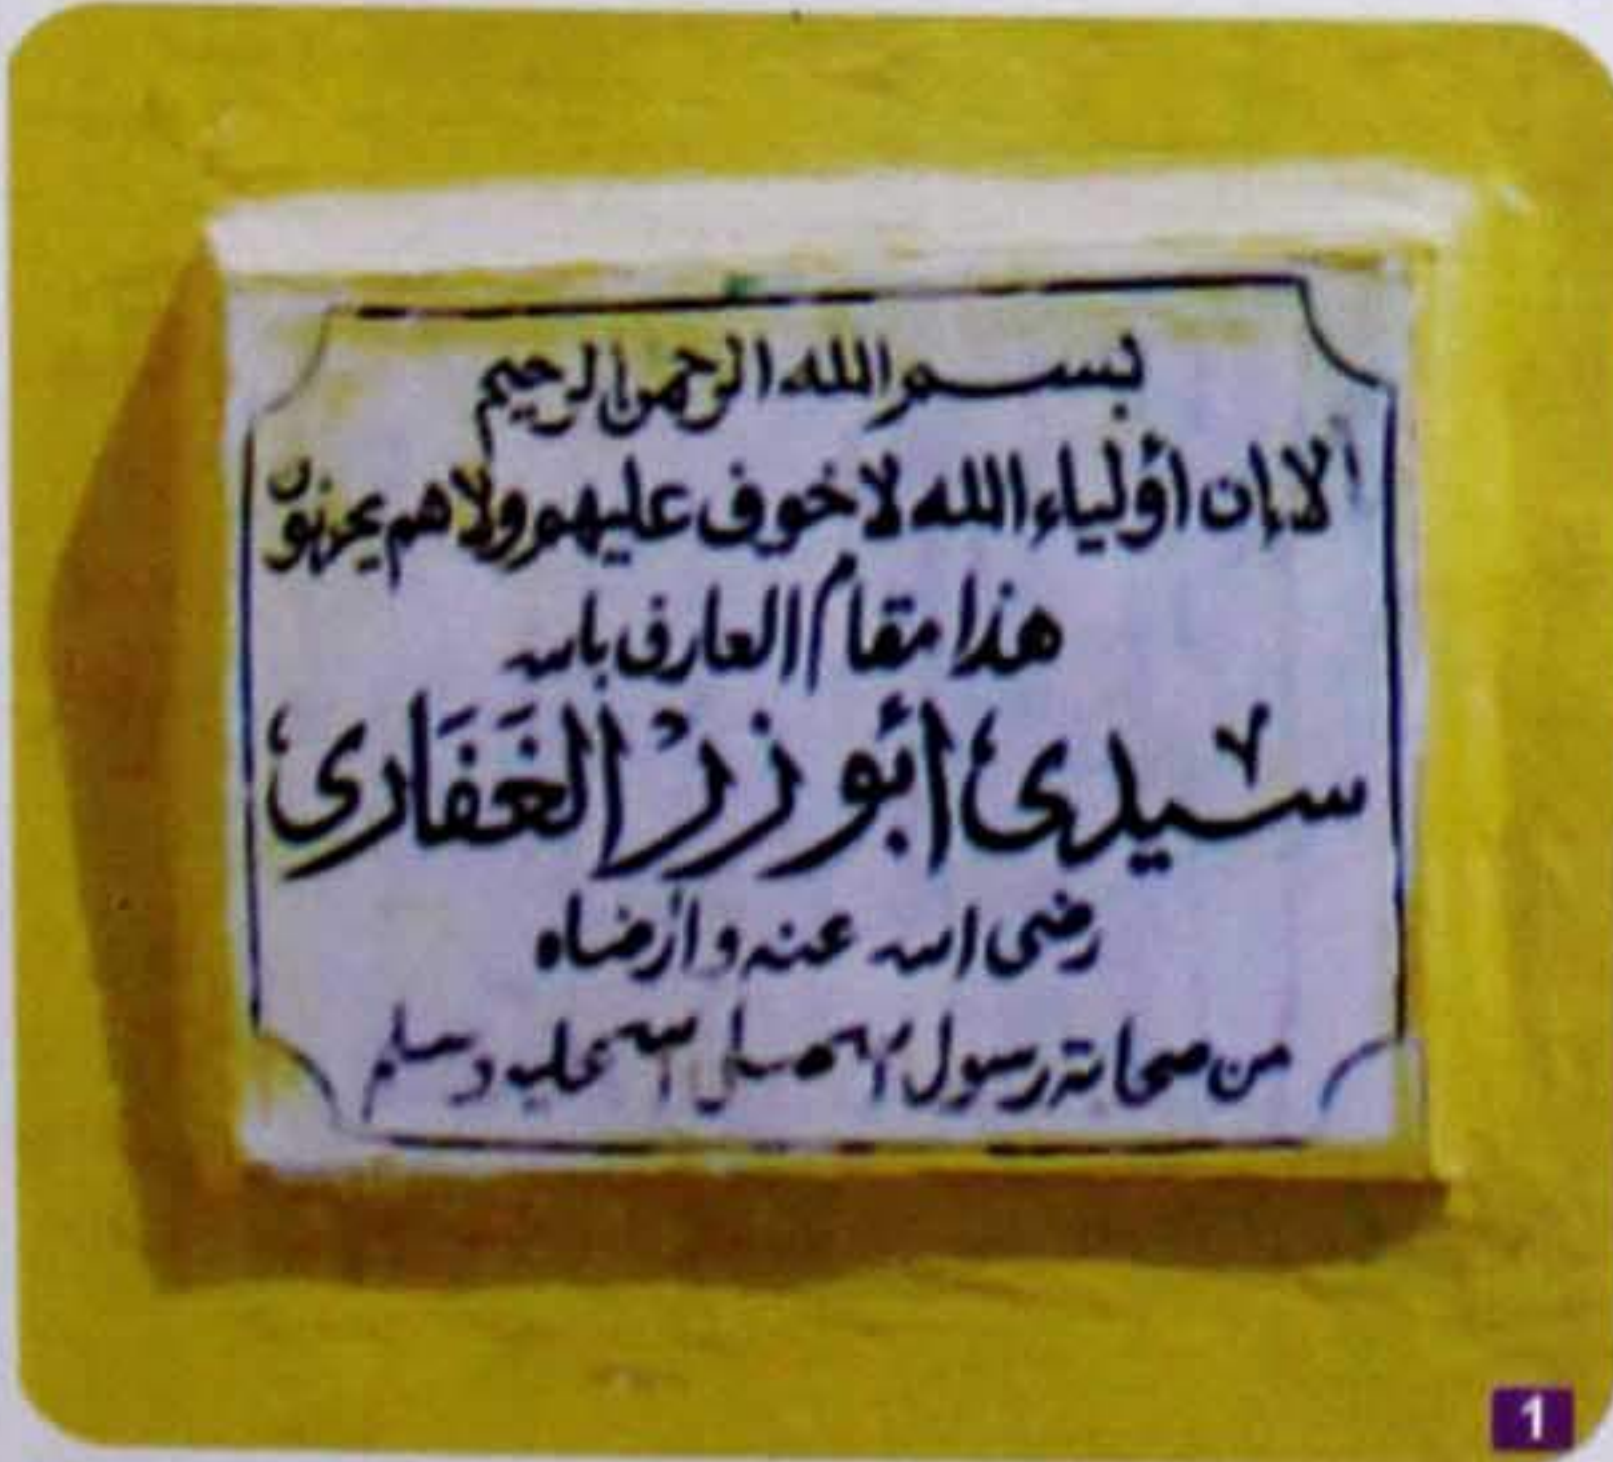 بسم الله الرحمن الرحيم
ألا إن أولياء الله لا خوف عليهم ولا هم يحزنون
هذا مقام العارف بالله
سيدى أبو زر الغفارى
رضى الله عنه وأرضاه
من صحابة رسول الله صلى الله عليه وسلم
1